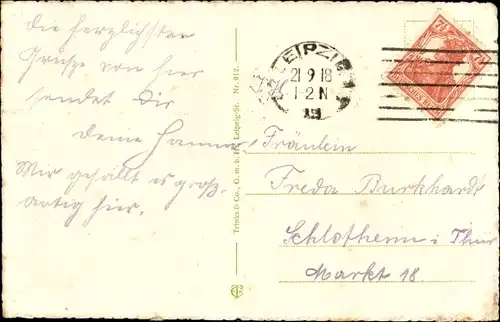 die herzlichsten
Grüße von hier
sendet Dir
deine Hanna.
Mir gefällt es groß-
artig hier.
Trinks & Co., G. m. b. H., Leipzig-St. Nr. 912.
LEIPZIG
21.9.18
1-2 N
Fräulein
Freda Burkhardt
Schlotheim i. Thür
Markt 18.